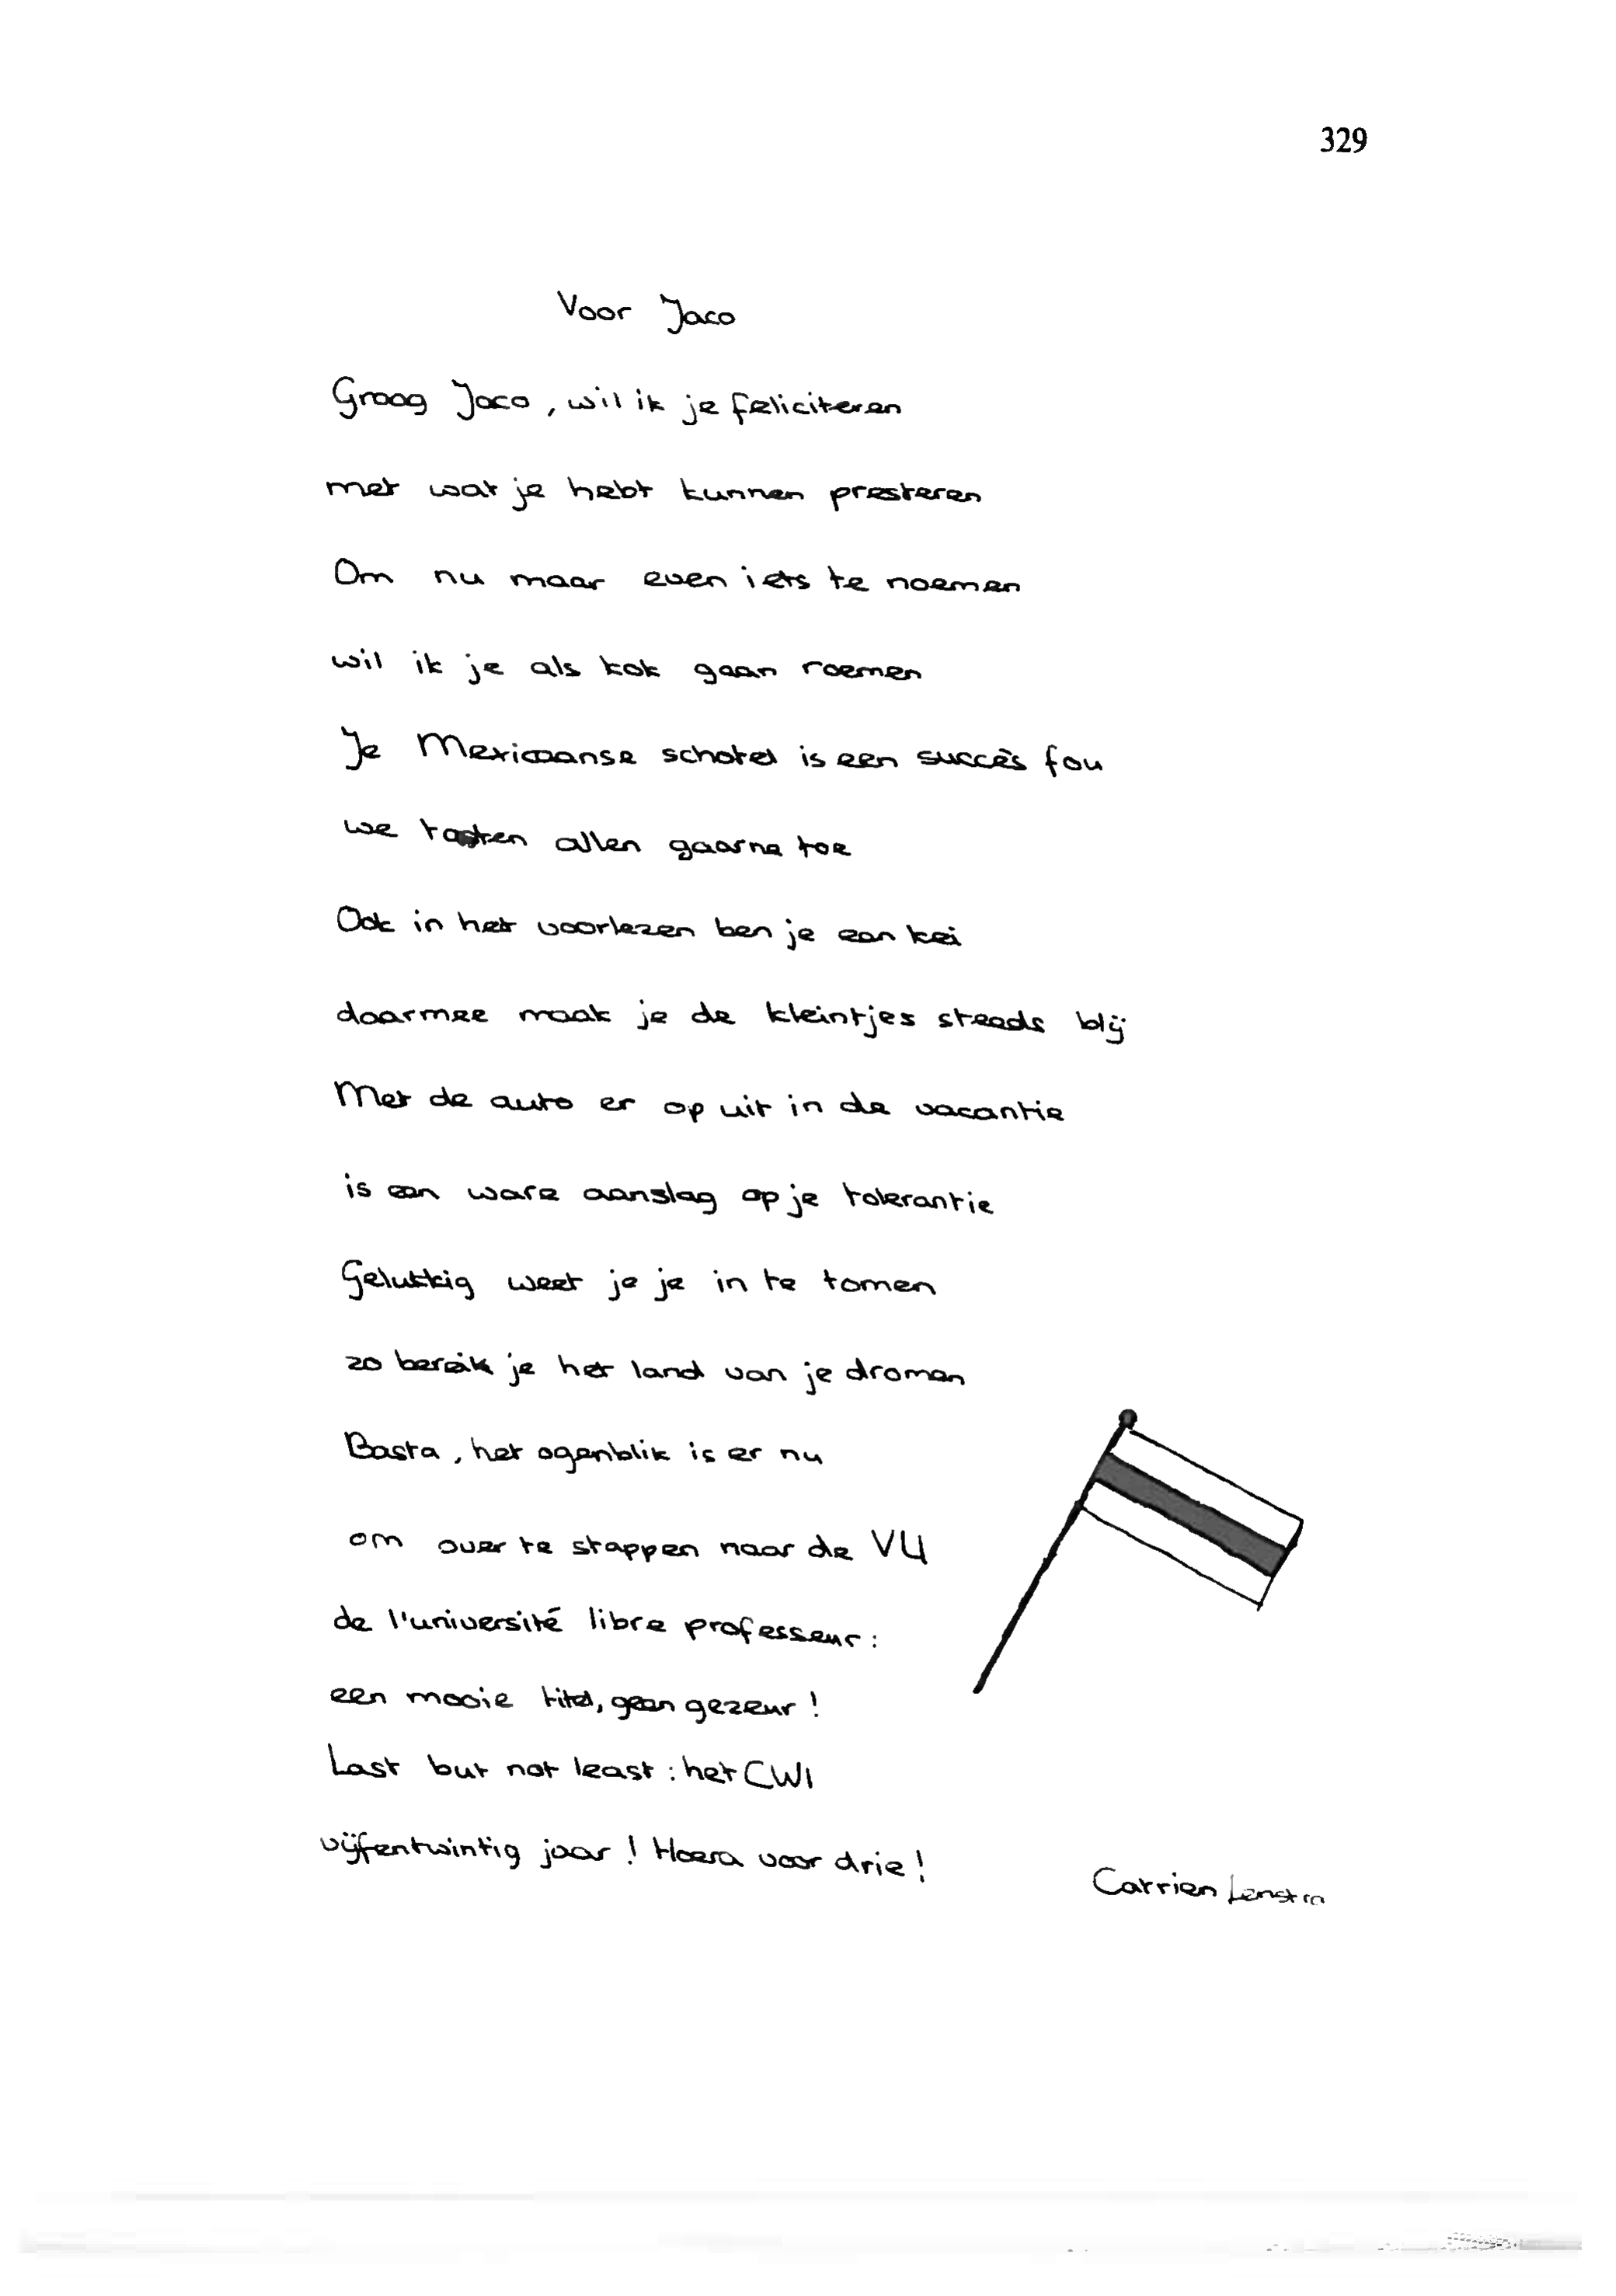 329
Voor Jaco
Graag Jaco, wil ik je feliciteren
met wat je hebt kunnen presteren
Om nu maar even iets te noemen
wil ik je als kok gaan roemen
Je Mexicaanse schotel is een succès fou
we tasten allen gaarne toe
Ook in het voorlezen ben je een kei
daarmee maak je de kleintjes steeds blij
Met de auto er op uit in de vacantie
is een ware aanslag op je tolerantie
Gelukkig weet je je in te tomen
zo bereik je het land van je dromen
Basta, het ogenblik is er nu
om over te stappen naar de VU
de l'université libre professeur:
een mooie titel, geen gezeur!
Last but not least: het CWI
vijfentwintig jaar! Hoera voor drie!
Carrien Lenstra